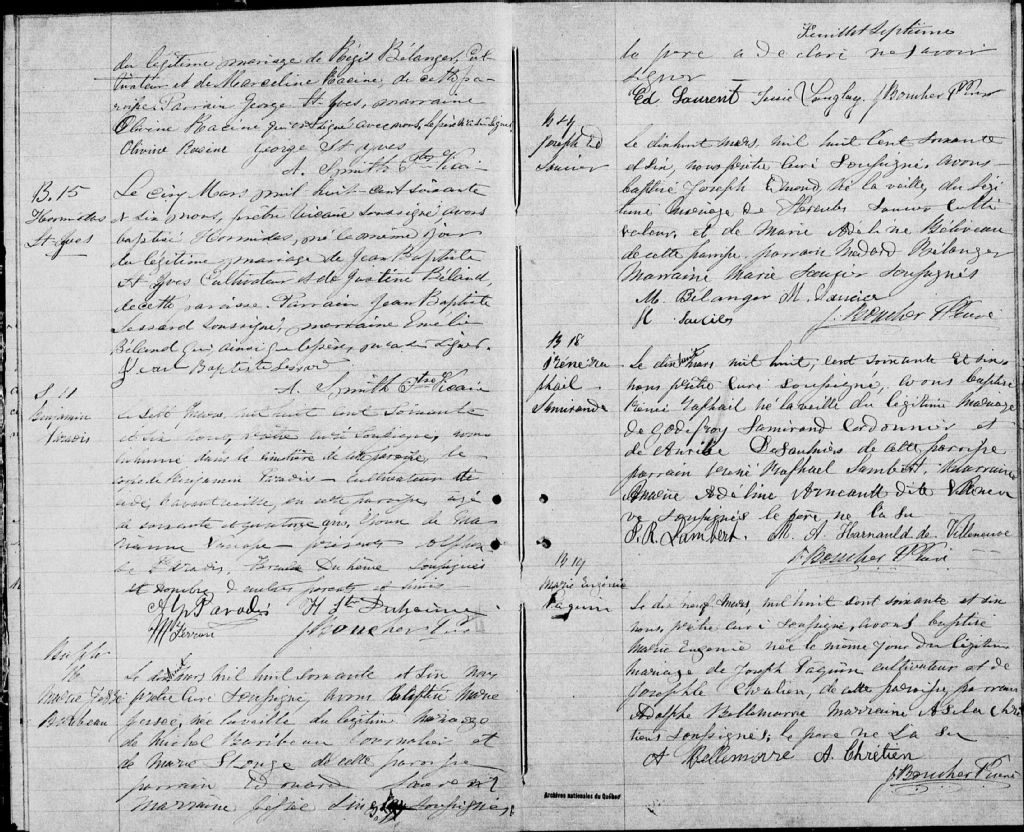 du légitime mariage de Régis Bélanger, Cul-
tivateur et de Marceline Racine, de cette pa-
roisse. Parrain George St-Yves, marraine
Olivine Racine qui a signé avec nous, le père
Olivine Racine George St Yves
A. Smith Ptre Vicai-
B. 15
Hormidas
St-Yves
Le cinq Mars mil huit-cent soixante
et dix nous, prêtre Vicaire soussigné avons
baptisé Hormidas, né le même jour
du légitime mariage de Jean Baptiste
St-Yves Cultivateur et de Justine Béland,
de cette paroisse. Parrain Jean Baptiste
Lessard soussigné, marraine Emélie
Béland qui, ainsi que le père, signer.
Jean Baptiste Lessard
A. Smith Ptre Vicair
S. 11
Benjamin
Paradis
le sept Mars, mil huit cent soixante
et dix nous, prêtre curé soussigné, avons
inhumé dans le cimetière de cette paroisse, le
corps de Benjamin Paradis Cultivateur
décédé l'avant veille, en cette paroisse, agé
de soixante et quatorze ans, Epoux de Ma-
rianne présents Adolphe
Paradis, Duhème soussignés
et nombre d'autres parents et amis
Alp Paradis H Ste Duhaime
Ferron J Boucher Ptre
Bapte
16
Marie Jessée
Baribeau
Le dix mars mil huit soixante et dix nous
prêtre curé soussigné avons baptisé Marie
Jessée, née la veille du légitime mariage
de Michel Baribeau Journalier et
de Marie St Onge de cette paroisse
parrain Edouard Laurent
Marraine Jessée soussignés
Feuillet Septième
le père a déclaré ne savoir
signer
Ed Laurent Jessie Langlay J Boucher Ptre
B 17
Joseph Ed
Saucier
Le dix huit mars, mil huit cent soixante
et dix, nous prêtre curé soussigné avons
baptisé Joseph Edmond, né la veille, du légi-
time mariage de Hercules Saucier culti-
vateur, et de Marie Adeline Béliveau
de cette paroisse, parrain Médard Bélanger
Marraine Marie Saucier soussignés
M. Bélanger M. Saucier
H Saucier
J. Boucher Ptre curé
B 18
René Ra
phael
Lamirande
Le dix huit mars mil huit, cent soixante et dix
nous prêtre curé soussigné, avons baptisé
René Raphael né la veille du légitime mariage
de Godefroy Lamirand Cordonnier et
de Aurélie Desaulniers de cette paroisse
parrain René Raphael Lambert, Marraine
Marie Adéline Arneault dite Villeneu
ve soussignés le père ne la su
P. R. Lambert. M. A Harnauld de Villeneuve
J. Boucher Ptre curé
B 19
Marie Eugénie
Paquin
Le dix neuf mars, mil huit cent soixante et dix
nous, prêtre curé soussigné, avons baptisé
Marie Eugenie née le même jour du légitime
mariage de Joseph Paquin cultivateur et de
Josephte Chrétien, de cette paroisse, parrain
Adolphe Bellemarre Marraine Asila Chré
tien soussignés, le père ne la su
A Bellemarre A. Chrétien
J. Boucher Ptre curé
Archives nationales du Québec